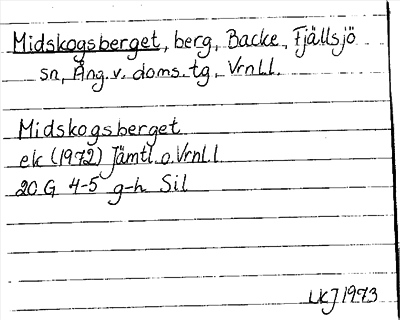 Midskogsberget, berg, Backe, Fjällsjö
sn, Ång. v. doms. tg, Vrnl.l.
Midskogsberget
ek (1972) Jämtl. o. Vrnl.l
20 G 4-5 g-h Sil
LKJ 1973